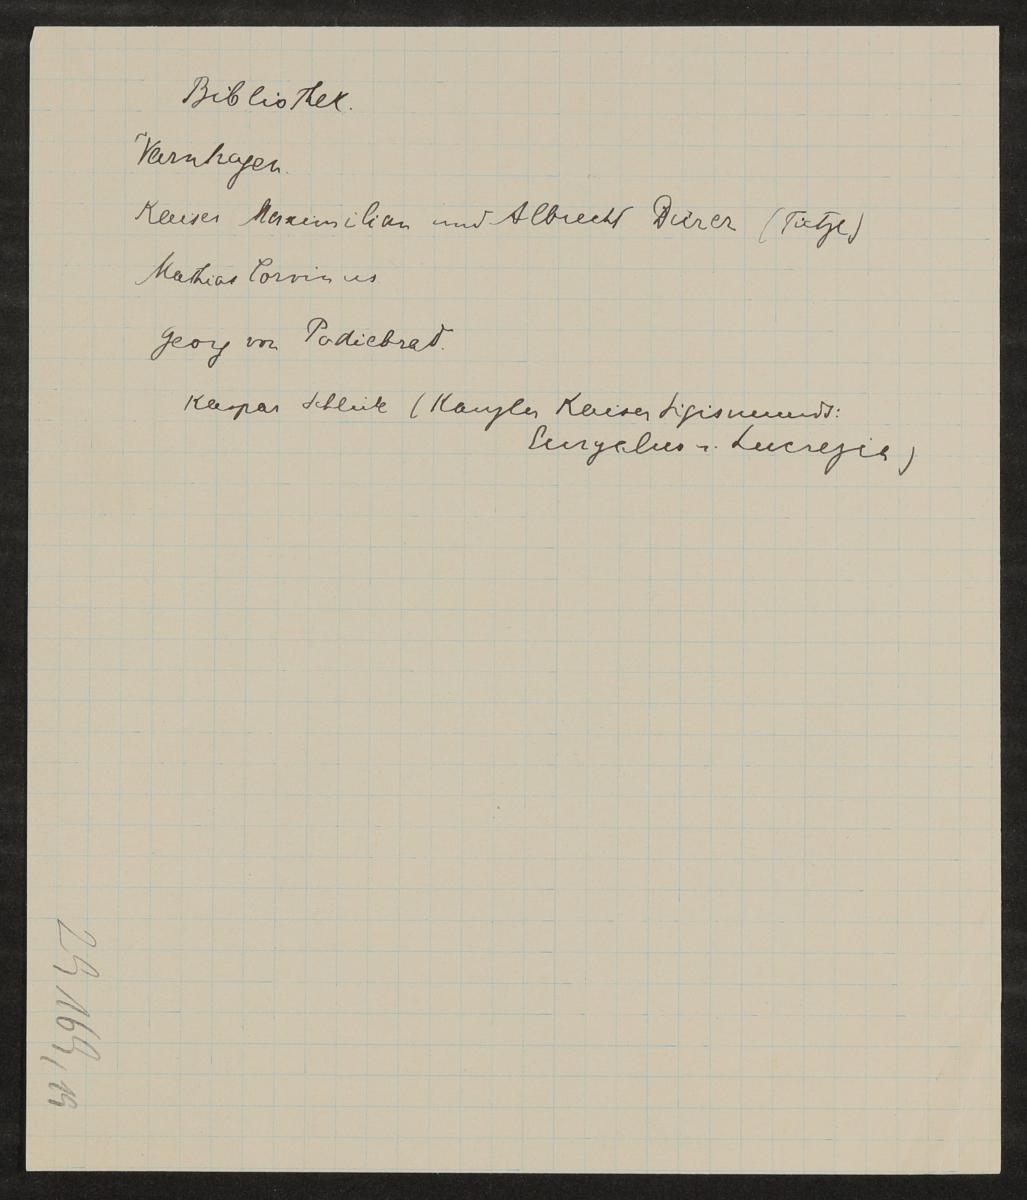 Bibliothek.
Varnhagen.
Kaiser Maximilian und Albrecht Dürer (Tietze)
Mathias Corvinus
Georg von Podiebrad.
Kaspar Schlick (Kanzler Kaiser Sigismunds:
Euryalus u. Lucrezia)